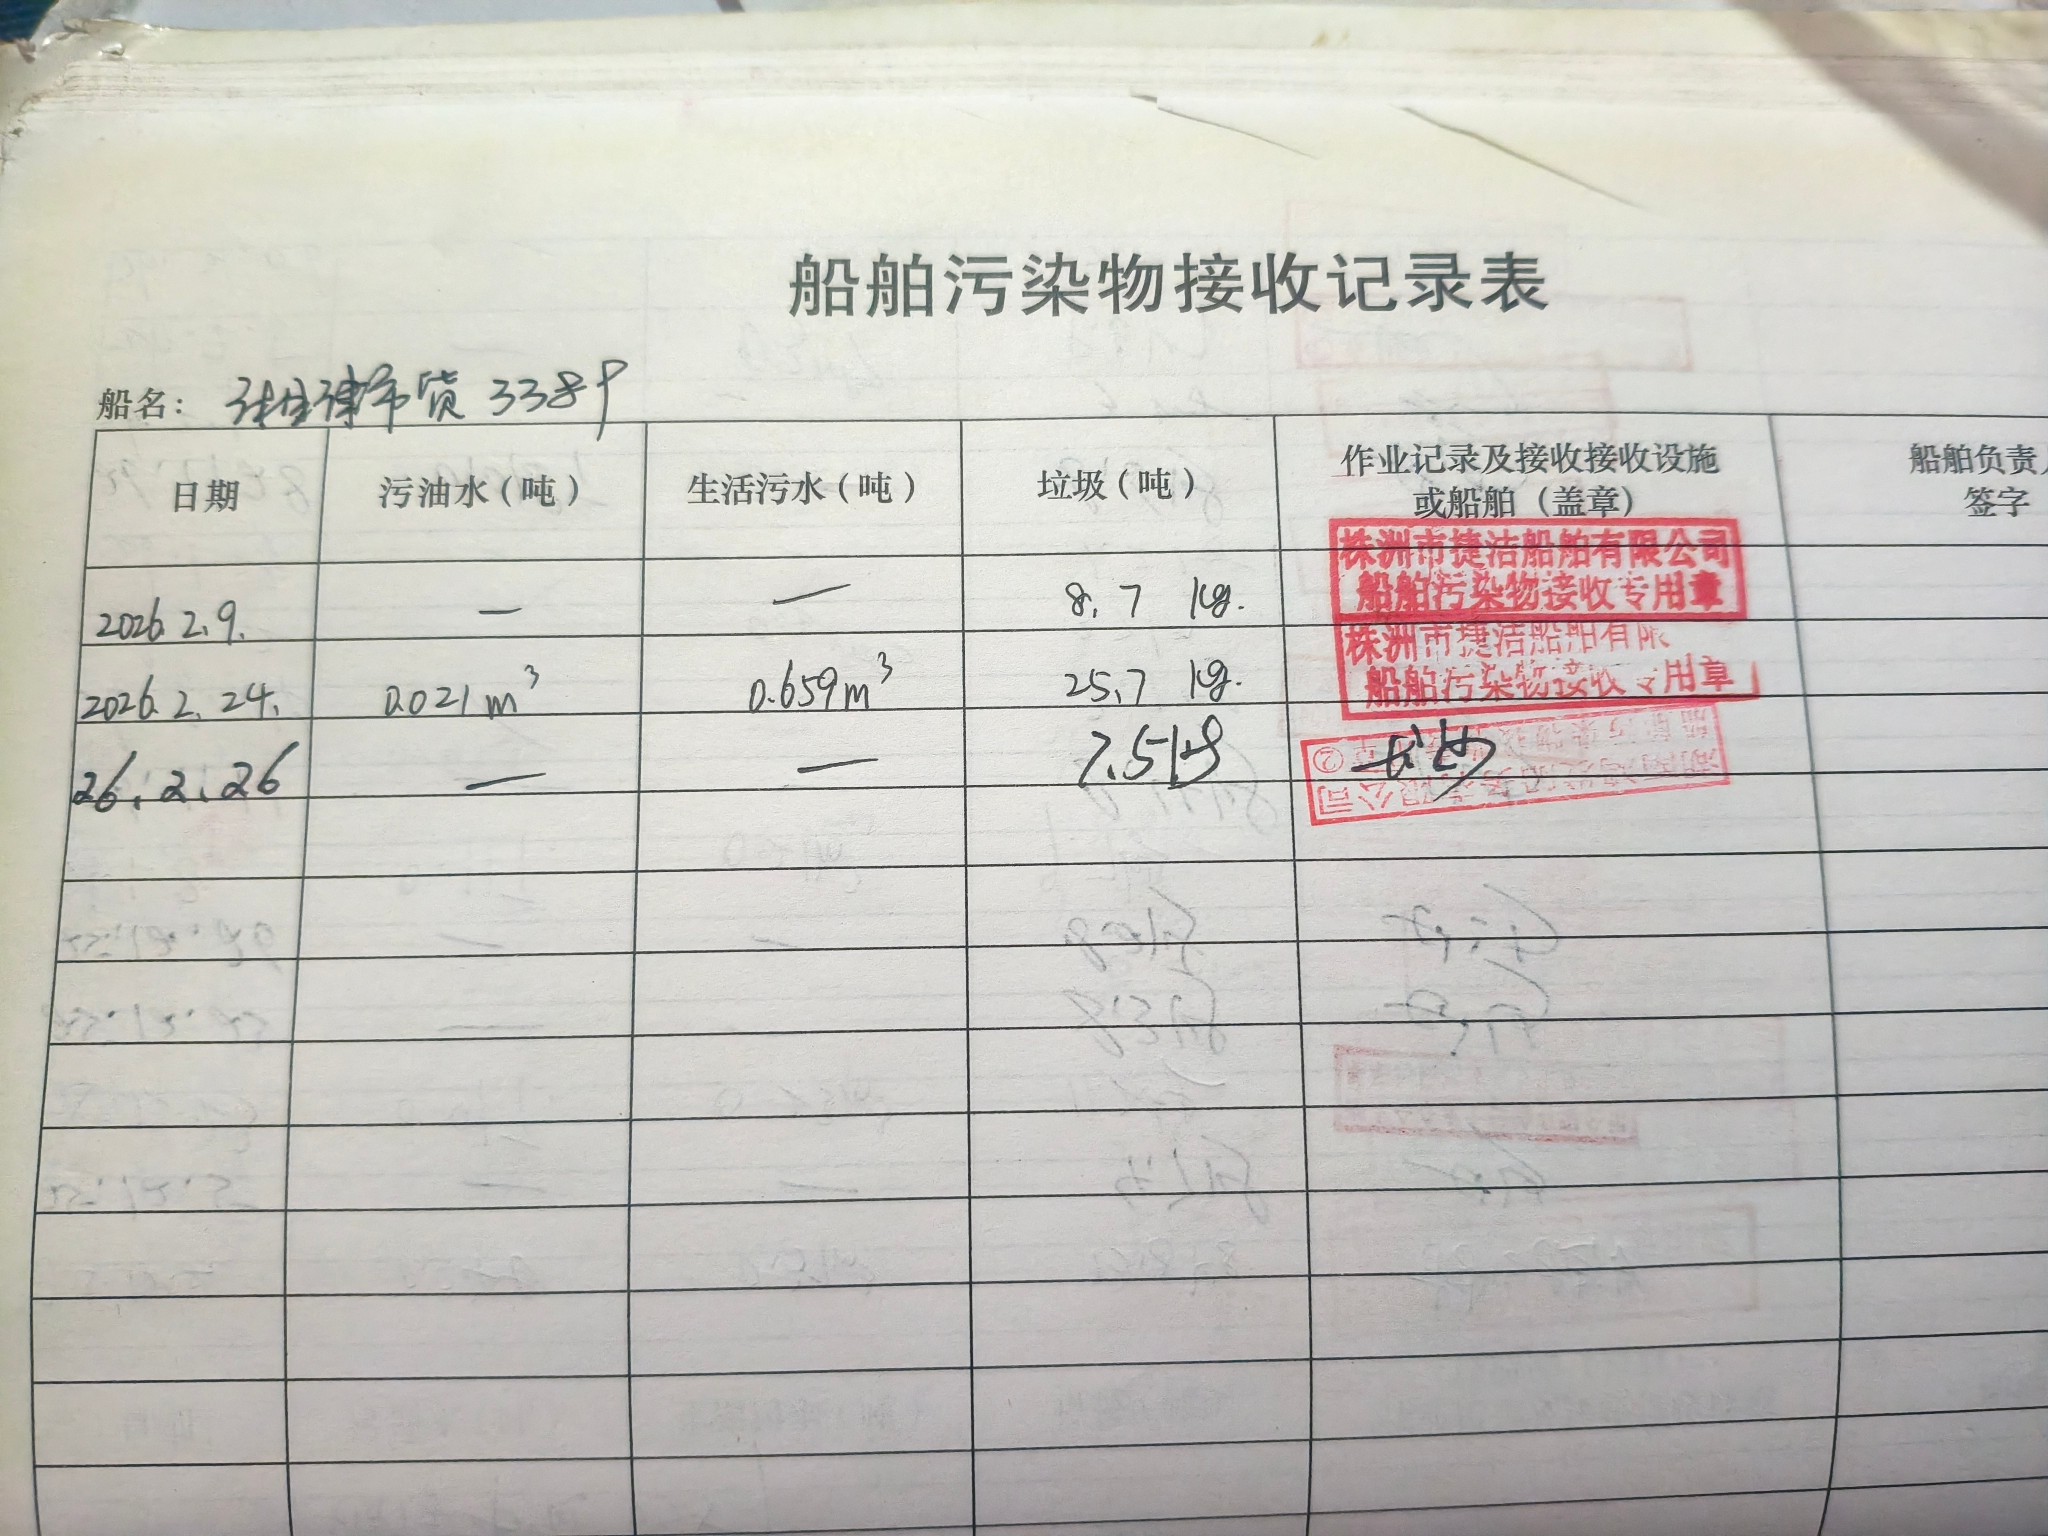 船舶污染物接收记录表
船名： 货 3389
日期 污油水（吨） 生活污水（吨） 垃圾（吨） 作业记录及接收接收设施或船舶（盖章） 船舶负责人签字
株洲市捷洁船舶有限公司
船舶污染物接收专用章
2026.2.9. — — 8.7 kg.
株洲市捷洁船舶有限
船舶污染物接收专用章
2026.2.24. 0.021m³ 0.659m³ 25.7 kg.
26.2.26 — — 7.5kg 长沙